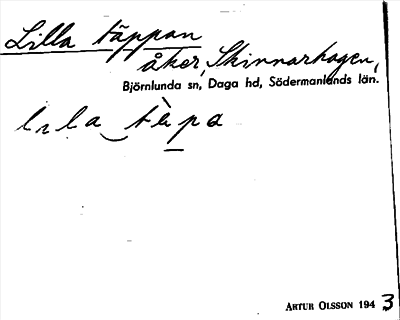 Lilla täppan
åker, Skinnarhagen,
Björnlunda sn, Daga hd, Södermanlands län.
lıla‿tèpa
ARTUR OLSSON 1943